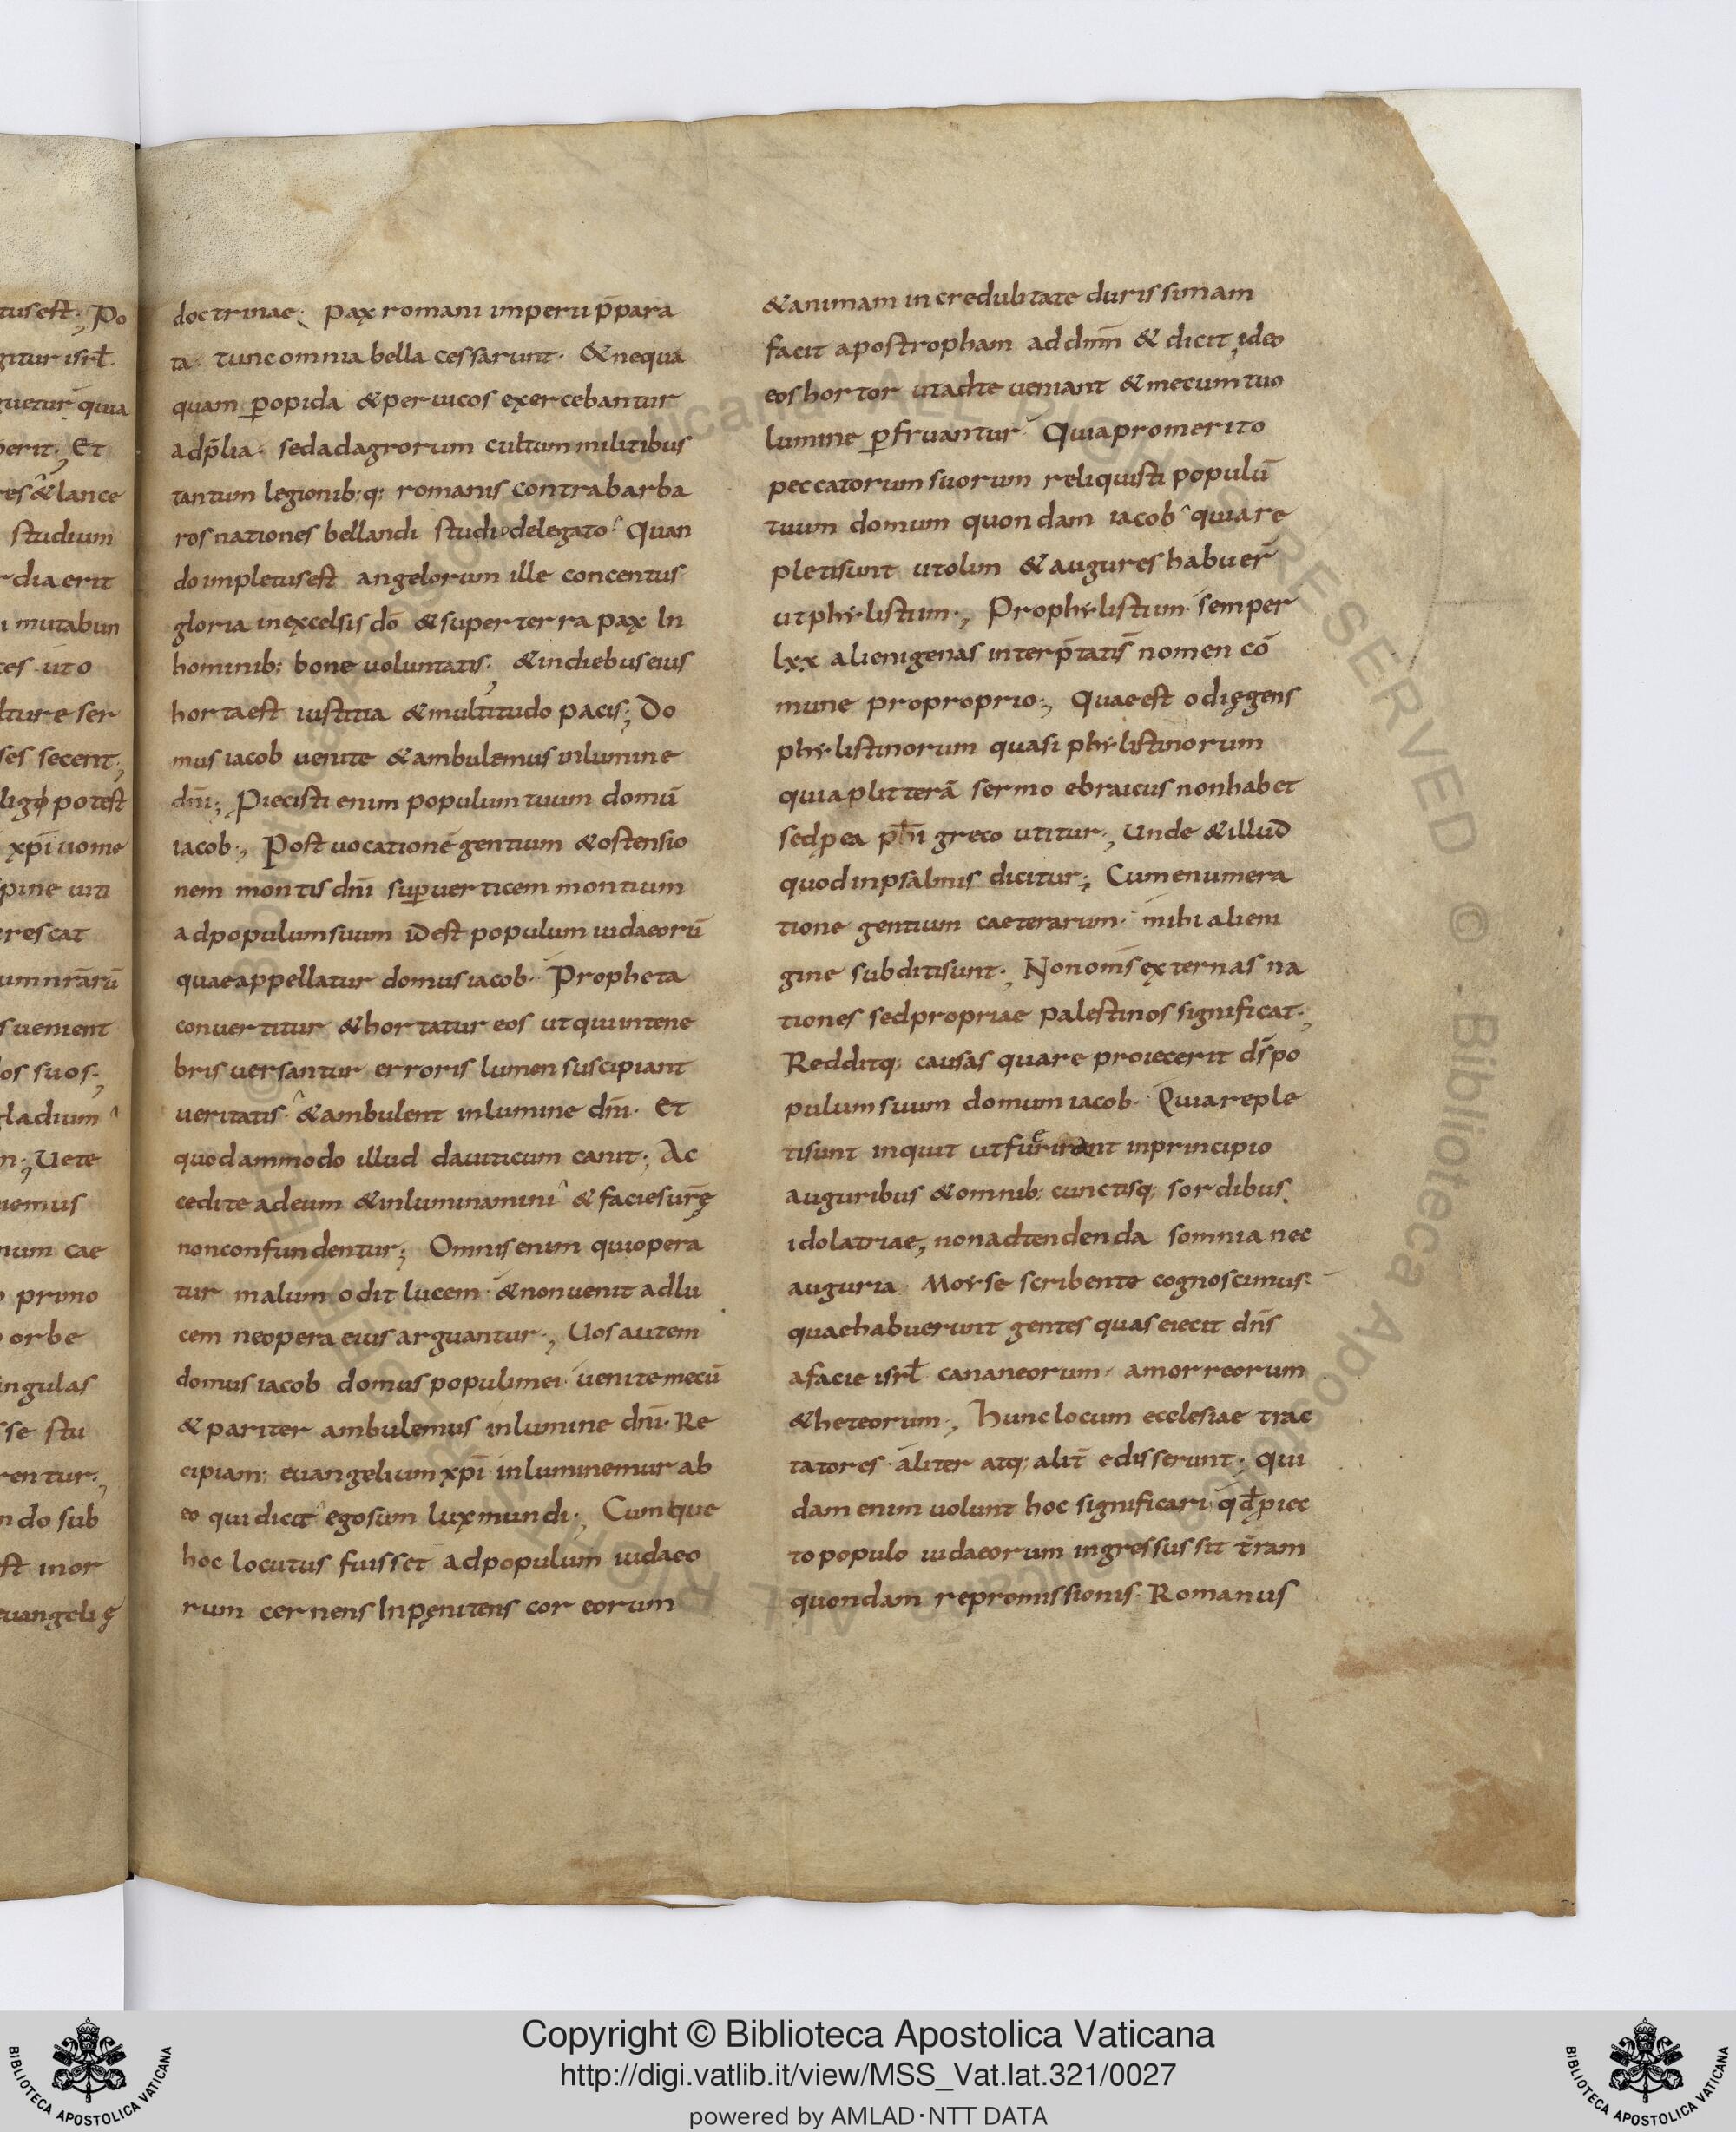 tus est; Po
gitur isrł.
guetur quia
perit; Et
res & lance
studium
rdia erit
i mutabun
tes ut o
lture ser
ses secent;
potest
xp̄i uome
spine uiti
crescat
umnrārū
s uenient
los suos;
gladium
n; Uete
iemus
num cae
o primo
orbe
ingulas
sse stu
rentur;
ndo sub
est inor
euangelię
doctrinae; pax romani imperii p̄para
ta. tunc omnia bella cessarunt. & nequa
quam ꝑ opida & per uicos exercebantur
ad p̄lia. sed ad agrorum cultum militibus
tantum legionib;q; romanis contra barba
ros nationes bellandi studio delegato. Quan
do impletus est angelorum ille concentus
gloria in excelsis dō & super terra pax In
hominib; bone uoluntatis; & in diebus eius
horta est iustitia & multitudo pacis; Do
mus iacob uenite & ambulemus in lumine
dn̄i; Piecisti enim populum tuum domū
iacob; Post uocationē gentium & ostensio
nem montis dn̄i suꝑ uerticem montium
ad populum suum id est populum iudaeorū
quae appellatur domus iacob. Propheta
conuertitur & hortatur eos ut qui in tene
bris uersantur erroris lumen suscipiant
ueritatis. & ambulent in lumine dn̄i. Et
quodammodo illud dauiticum canit; Ac
cedite ad eum & inluminamini & facies ur̄ę
non confundentur; Omnis enim qui opera
tur malum odit lucem. & non uenit ad lu
cem ne opera eius arguantur; Uos autem
domus iacob domus populi mei. uenite mecū
& pariter ambulemus in lumine dn̄i. Re
cipiam; euangelium xp̄i inluminemur ab
eo qui dicit ego sum lux mundi; Cumque
hoc locutus fuisset ad populum iudaeo
rum cernens Inpęnitens cor eorum
& animam incredulitate durissimam
facit apostropham ad dn̄m & dicit, ideo
eos hortor ut ad te ueniant & mecum tuo
lumine ꝑfruantur. Quia pro merito
peccatorum suorum reliquisti populū
tuum domum quondam iacob. quia re
pleti sunt ut olim & augures habuer̄
ut phylistiim; Pro phylistiim. semper
lxx alienigenas interp̄tatis nomen cō
mune pro proprio; Quae est odię gens
phylistinorum quasi phylistinorum
quia p litterā sermo ebraicus non habet
sed p ea phi greco utitur; Unde & illud
quod in psalmis dicitur; Cum enumera
tione gentium caeterarum. mihi alieni
gine subditi sunt; Non omīs externas na
tiones sed propriae palestinos significat;
Redditq; causas quare proiecerit dś po
pulum suum domum iacob. Quia reple
ti sunt inquit ut in principio
auguribus & omnib; cunctisq; sordibus
idolatriae, non adtendenda somnia nec
auguria. Moyse scribente cognoscimus.
quae habuerunt gentes quas eiecit dn̄s
a facie isrł cananeorum. amorreorum
& heteorum; Hunc locum ecclesiae trac
tatores aliter atq; alit̄ edisserunt; Qui
dam enim uolunt hoc significari qđ piec
to populo iudaeorum ingressus sit t̄ram
quondam repromissionis. Romanus
Copyright © Biblioteca Apostolica Vaticana
http://digi.vatlib.it/view/MSS_Vat.lat.321/0027
powered by AMLAD·NTT DATA
BIBLIOTECA APOSTOLICA VATICANA
BIBLIOTECA APOSTOLICA VATICANA